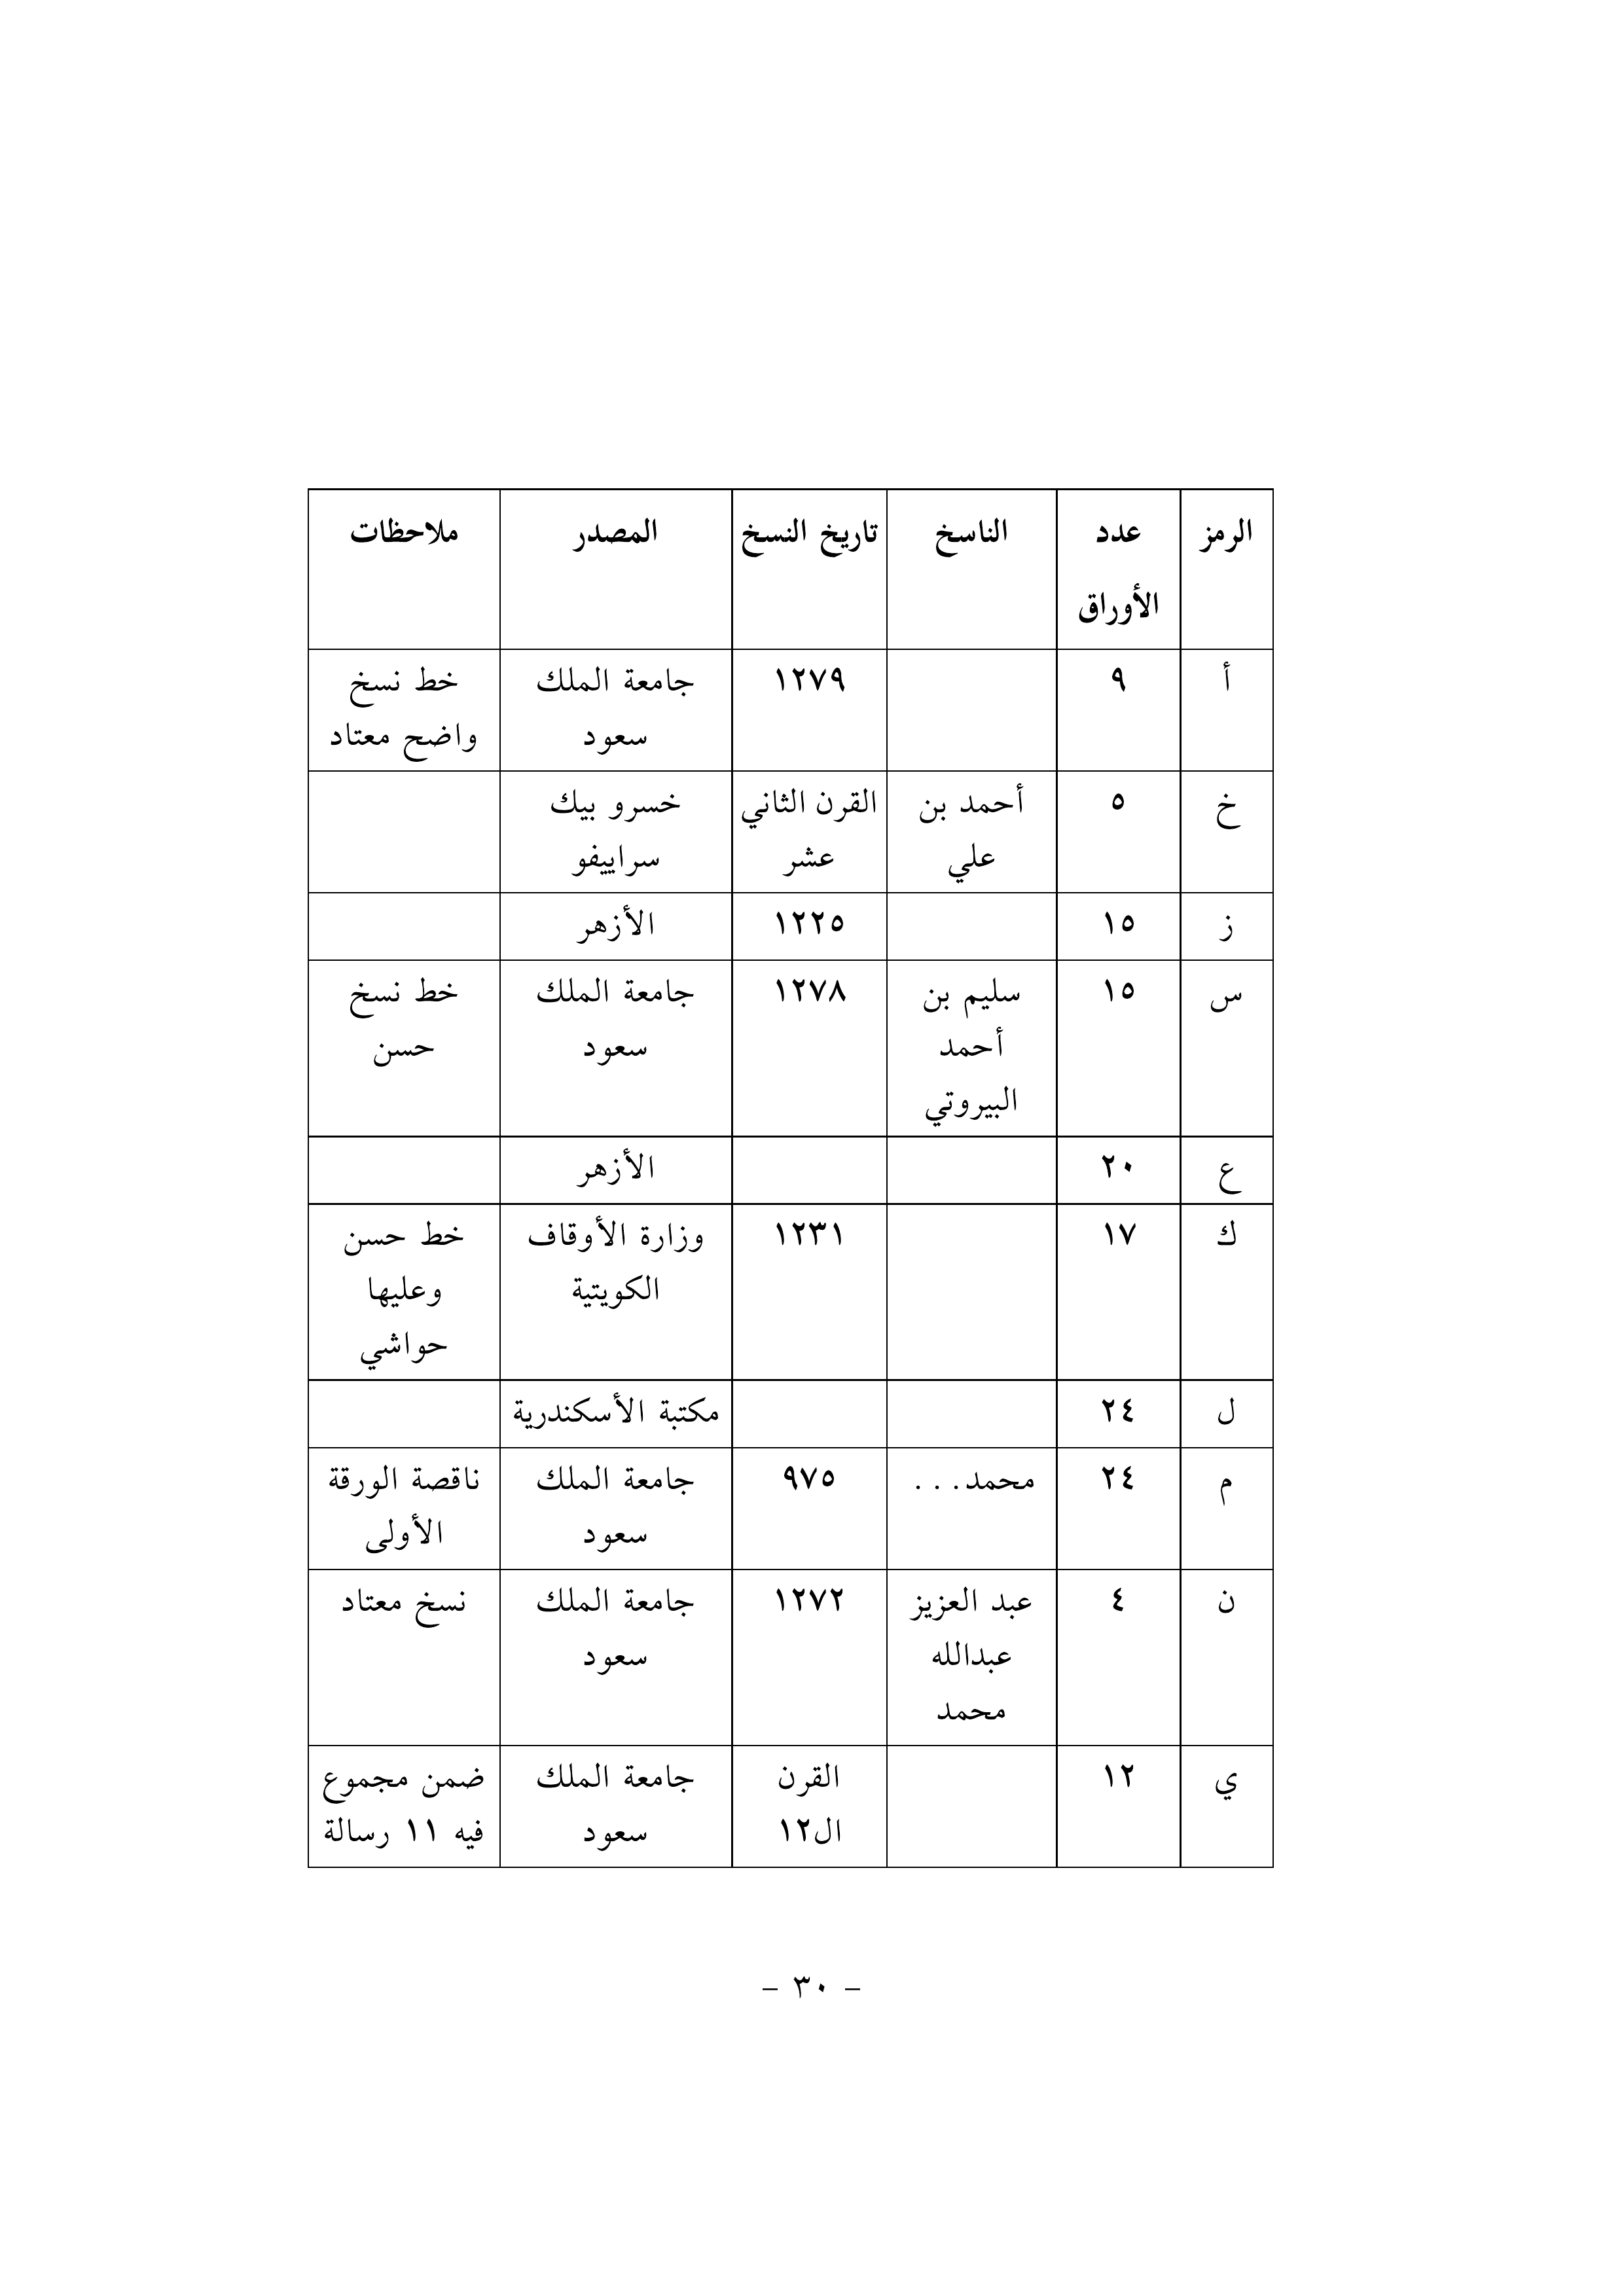 الرمز
عدد
الأوراق
الناسخ
تاريخ النسخ
المصدر
ملاحظات
أ
٩
١٢٧٩
جامعة الملك
سعود
خط نسخ
واضح معتاد
خ
٥
أحمد بن
علي
القرن الثاني
عشر
خسرو بيك
سراييفو
ز
١٥
١٢٢٥
الأزهر
س
١٥
سليم بن
أحمد
البيروتي
١٢٧٨
جامعة الملك
سعود
خط نسخ
حسن
ع
٢٠
الأزهر
ك
١٧
١٢٣١
وزارة الأوقاف
الكويتية
خط حسن
وعليها
حواشي
ل
٢٤
مكتبة الأسكندرية
م
٢٤
محمد...
٩٧٥
جامعة الملك
سعود
ناقصة الورقة
الأولى
ن
٤
عبد العزيز
عبدالله
محمد
١٢٧٢
جامعة الملك
سعود
نسخ معتاد
ي
١٢
القرن
ال١٢
جامعة الملك
سعود
ضمن مجموع
فيه ١١ رسالة
- ٣٠ -